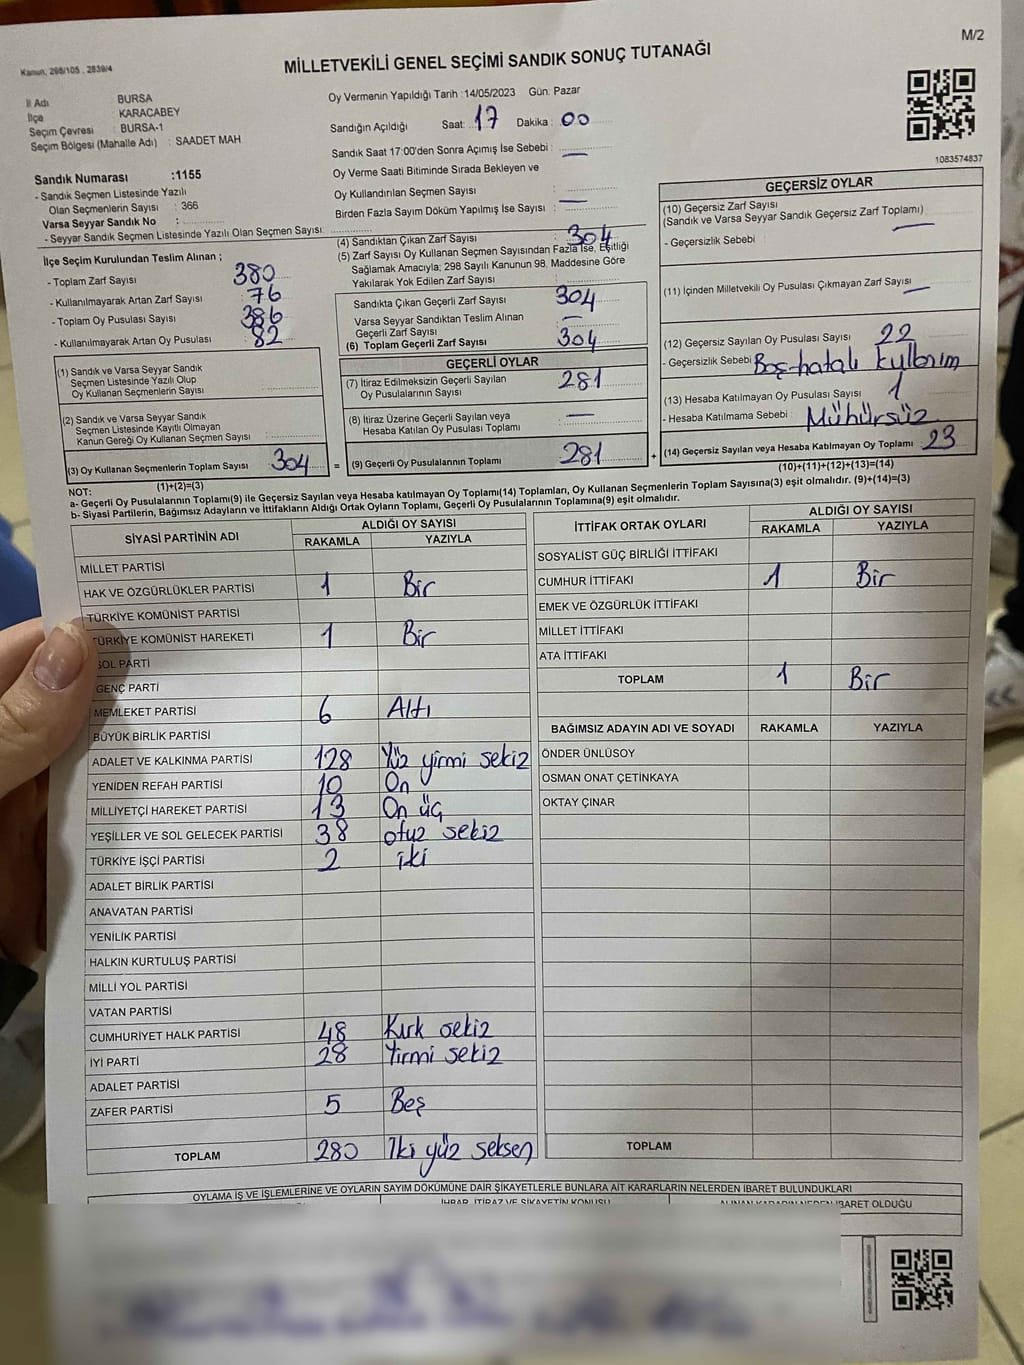 M/2
Kanun, 298/105 , 2839/4
MİLLETVEKİLİ GENEL SEÇİMİ SANDIK SONUÇ TUTANAĞI
İl Adı : BURSA
İlçe : KARACABEY
Seçim Çevresi : BURSA-1
Seçim Bölgesi (Mahalle Adı) : SAADET MAH
Sandık Numarası :1155
- Sandık Seçmen Listesinde Yazılı
Olan Seçmenlerin Sayısı : 366
Varsa Seyyar Sandık No :
- Seyyar Sandık Seçmen Listesinde Yazılı Olan Seçmen Sayısı:
Oy Vermenin Yapıldığı Tarih :14/05/2023 Gün: Pazar
Sandığın Açıldığı Saat: 17 Dakika : 00
Sandık Saat 17:00'den Sonra Açımış İse Sebebi : —
Oy Verme Saati Bitiminde Sırada Bekleyen ve
Oy Kullandırılan Seçmen Sayısı : —
Birden Fazla Sayım Döküm Yapılmış İse Sayısı :
1083574837
İlçe Seçim Kurulundan Teslim Alınan ;
- Toplam Zarf Sayısı : 380
- Kullanılmayarak Artan Zarf Sayısı : 76
- Toplam Oy Pusulası Sayısı : 386
- Kullanılmayarak Artan Oy Pusulası : 82
(1) Sandık ve Varsa Seyyar Sandık
Seçmen Listesinde Yazılı Olup
Oy Kullanan Seçmenlerin Sayısı :
(2) Sandık ve Varsa Seyyar Sandık
Seçmen Listesinde Kayıtlı Olmayan
Kanun Gereği Oy Kullanan Seçmen Sayısı :
(3) Oy Kullanan Seçmenlerin Toplam Sayısı 304 =
(1)+(2)=(3)
(4) Sandıktan Çıkan Zarf Sayısı : 304
(5) Zarf Sayısı Oy Kullanan Seçmen Sayısından Fazla İse, Eşitliği
Sağlamak Amacıyla; 298 Sayılı Kanunun 98. Maddesine Göre
Yakılarak Yok Edilen Zarf Sayısı :
Sandıkta Çıkan Geçerli Zarf Sayısı : 304
Varsa Seyyar Sandıktan Teslim Alınan
Geçerli Zarf Sayısı : —
(6) Toplam Geçerli Zarf Sayısı : 304
GEÇERLİ OYLAR
(7) İtiraz Edilmeksizin Geçerli Sayılan
Oy Pusulalarının Sayısı : 281
(8) İtiraz Üzerine Geçerli Sayılan veya
Hesaba Katılan Oy Pusulası Toplamı : —
(9) Geçerli Oy Pusulalarının Toplamı : 281 +
GEÇERSİZ OYLAR
(10) Geçersiz Zarf Sayısı
(Sandık ve Varsa Seyyar Sandık Geçersiz Zarf Toplamı) —
- Geçersizlik Sebebi :
(11) İçinden Milletvekili Oy Pusulası Çıkmayan Zarf Sayısı : —
(12) Geçersiz Sayılan Oy Pusulası Sayısı : 22
- Geçersizlik Sebebi : Boş-hatalı
(13) Hesaba Katılmayan Oy Pusulası Sayısı : 1
- Hesaba Katılmama Sebebi : Mühürsüz
(14) Geçersiz Sayılan veya Hesaba Katılmayan Oy Toplamı : 23
(10)+(11)+(12)+(13)=(14)
NOT:
a- Geçerli Oy Pusulalarının Toplamı(9) ile Geçersiz Sayılan veya Hesaba katılmayan Oy Toplamı(14) Toplamları, Oy Kullanan Seçmenlerin Toplam Sayısına(3) eşit olmalıdır. (9)+(14)=(3)
b- Siyasi Partilerin, Bağımsız Adayların ve İttifakların Aldığı Ortak Oyların Toplamı, Geçerli Oy Pusulalarının Toplamına(9) eşit olmalıdır.
SİYASİ PARTİNİN ADI ALDIĞI OY SAYISI
RAKAMLA YAZIYLA
MİLLET PARTİSİ
HAK VE ÖZGÜRLÜKLER PARTİSİ 1 Bir
TÜRKİYE KOMÜNİST PARTİSİ
TÜRKİYE KOMÜNİST HAREKETİ 1 Bir
SOL PARTİ
GENÇ PARTİ
MEMLEKET PARTİSİ 6 Altı
BÜYÜK BİRLİK PARTİSİ
ADALET VE KALKINMA PARTİSİ 128 Yüz yirmi sekiz
YENİDEN REFAH PARTİSİ 10 On
MİLLİYETÇİ HAREKET PARTİSİ 13 On üç
YEŞİLLER VE SOL GELECEK PARTİSİ 38 otuz sekiz
TÜRKİYE İŞÇİ PARTİSİ 2 iki
ADALET BİRLİK PARTİSİ
ANAVATAN PARTİSİ
YENİLİK PARTİSİ
HALKIN KURTULUŞ PARTİSİ
MİLLİ YOL PARTİSİ
VATAN PARTİSİ
CUMHURİYET HALK PARTİSİ 48 Kırk sekiz
İYİ PARTİ 28 Yirmi sekiz
ADALET PARTİSİ
ZAFER PARTİSİ 5 Beş
TOPLAM 280 İki yüz seksen
İTTİFAK ORTAK OYLARI ALDIĞI OY SAYISI
RAKAMLA YAZIYLA
SOSYALİST GÜÇ BİRLİĞİ İTTİFAKI
CUMHUR İTTİFAKI 1 Bir
EMEK VE ÖZGÜRLÜK İTTİFAKI
MİLLET İTTİFAKI
ATA İTTİFAKI
TOPLAM 1 Bir
BAĞIMSIZ ADAYIN ADI VE SOYADI RAKAMLA YAZIYLA
ÖNDER ÜNLÜSOY
OSMAN ONAT ÇETİNKAYA
OKTAY ÇINAR
TOPLAM
OYLAMA İŞ VE İŞLEMLERİNE VE OYLARIN SAYIM DÖKÜMÜNE DAİR ŞİKAYETLERLE BUNLARA AİT KARARLARIN NELERDEN İBARET BULUNDUKLARI
İHBAR, İTİRAZ VE ŞİKAYETİN KONUSU ALINAN KARARIN NEDEN İBARET OLDUĞU